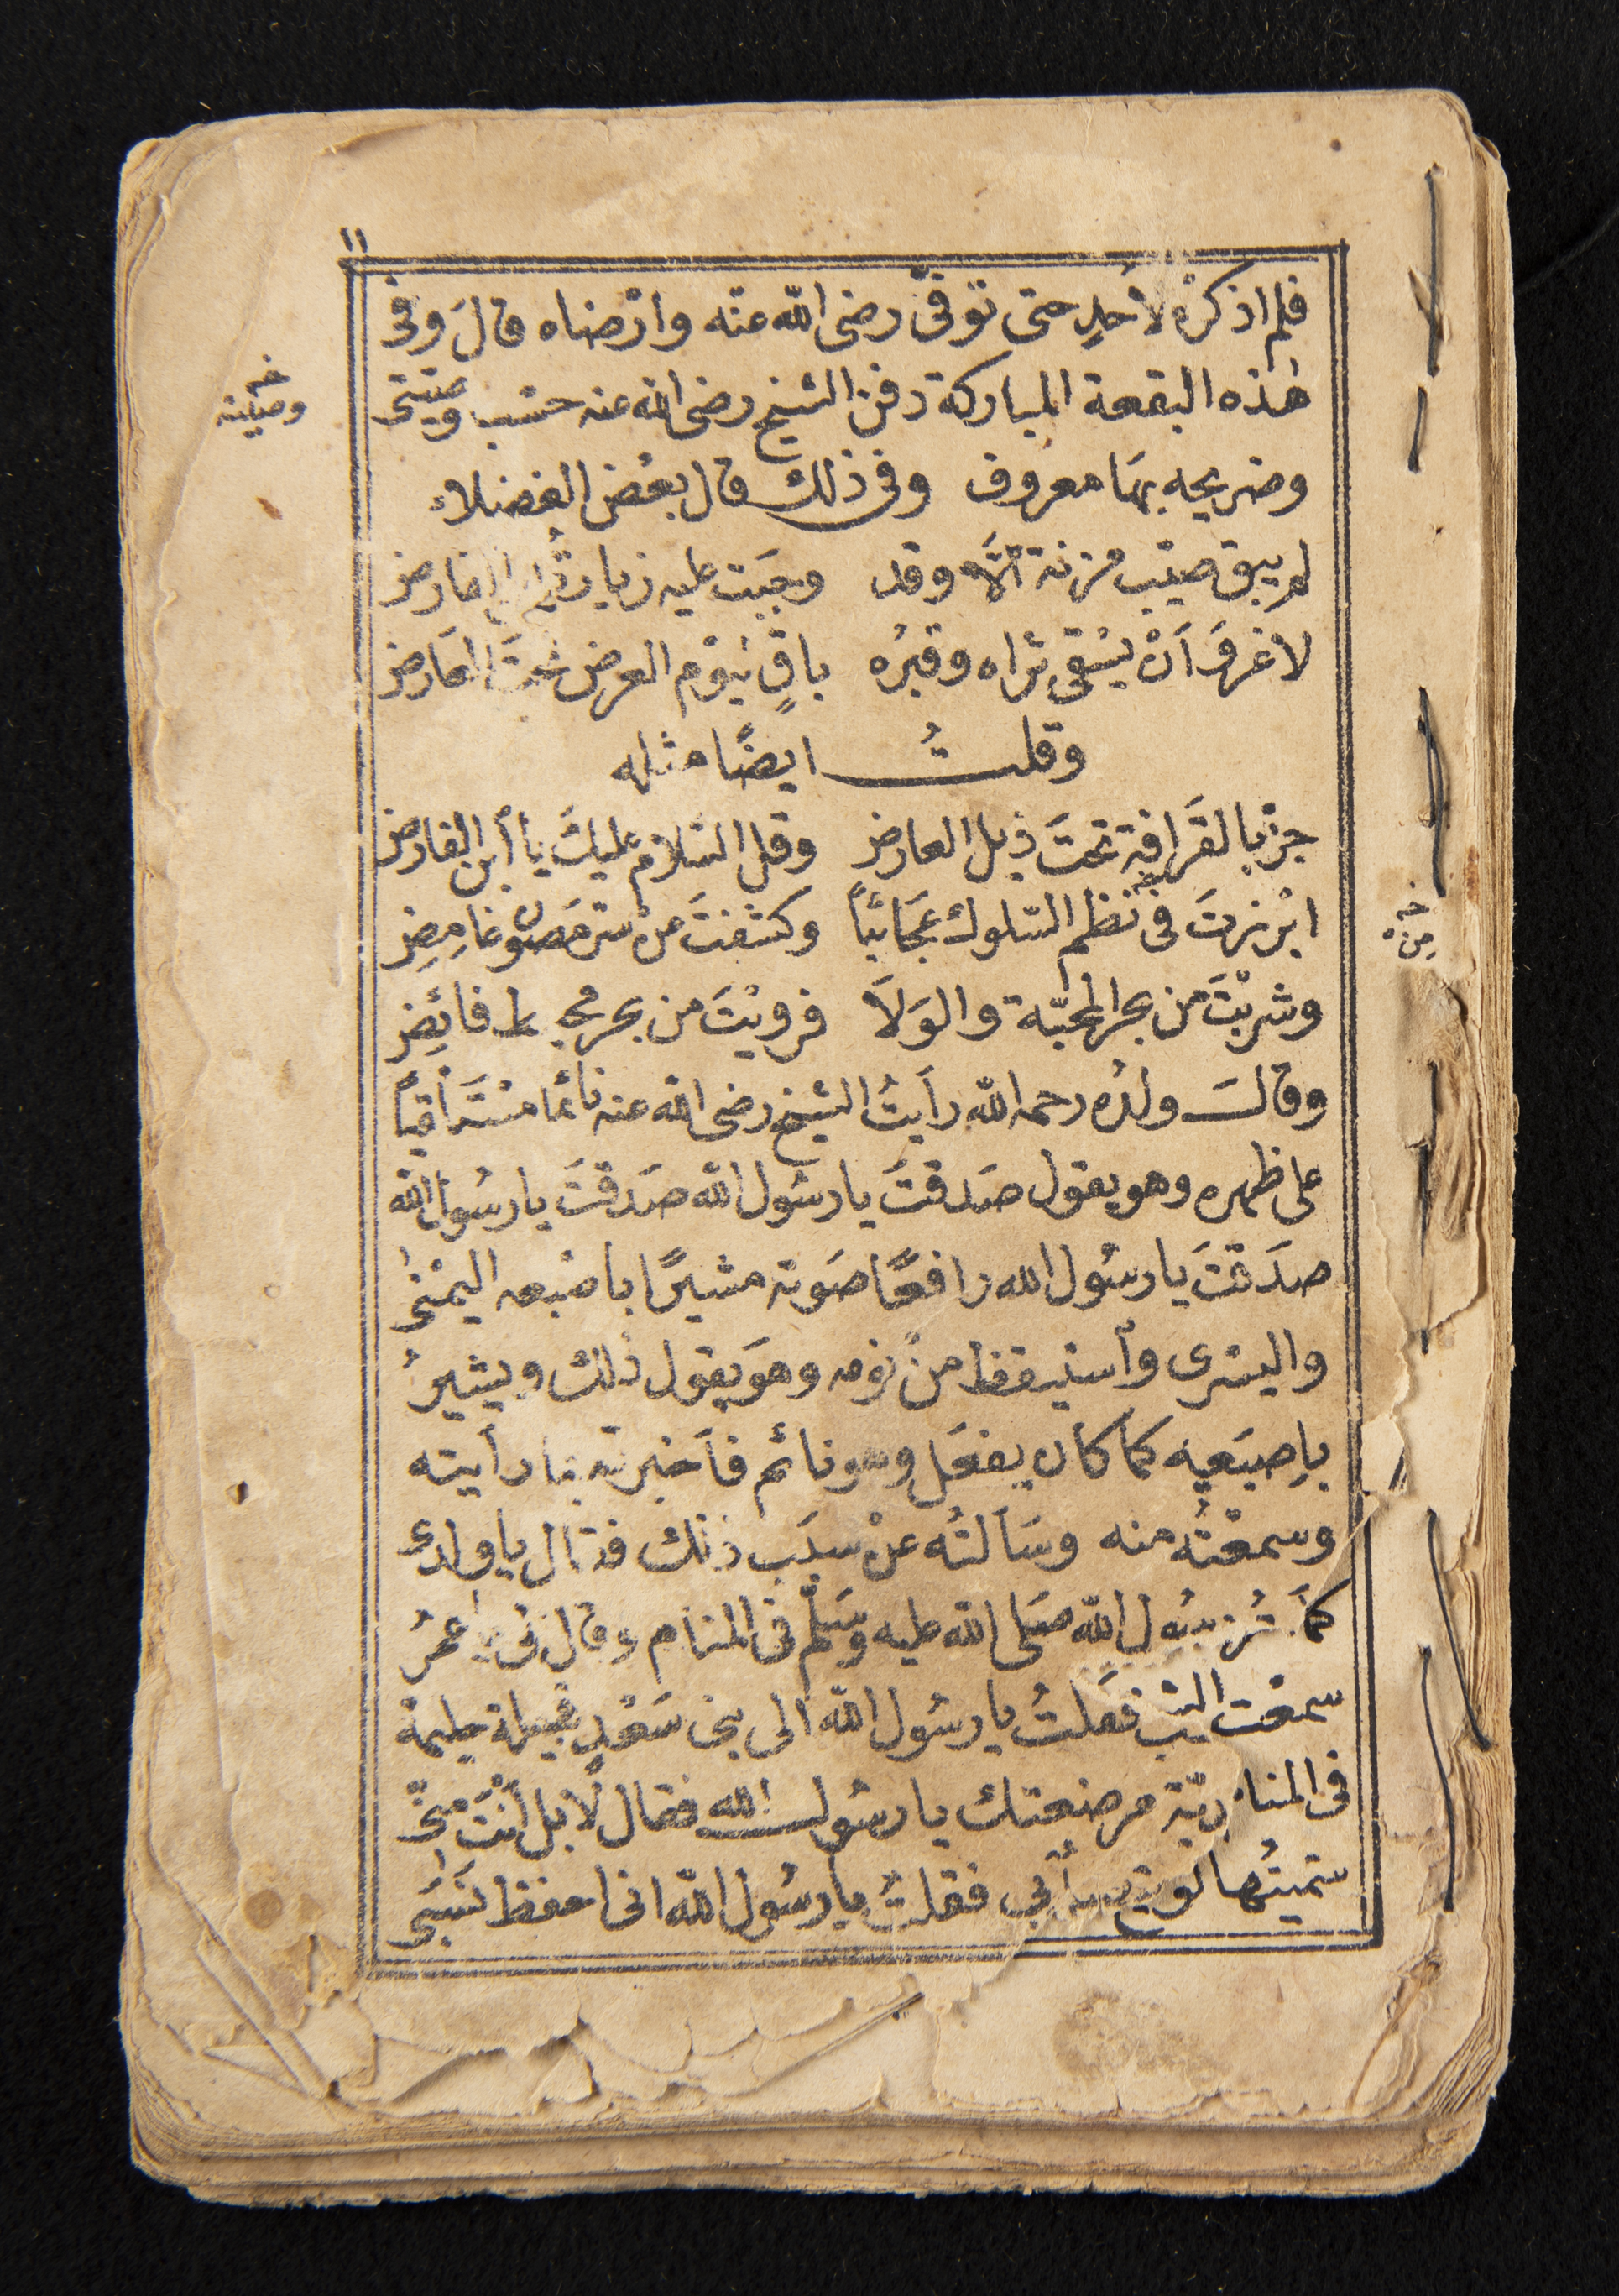 ١١
فلم اذكرْه لأحدٍ حتى توفىّ رضى الله عنه وارْضاه قالَ وفى
هٰذه البقعة المباركة دفن الشيخ رضى الله عنه حسَب وصيّتى
خـ وصيّته
وضريحه بهَا معرُوف وفى ذلك قال بعْض الفضلاء
لم يبق صيّب مزنة الّا وقد وجبَت عليه زيارة ابن الفارض
لا غروَ اَنْ يسْقى ثراه وقبرُه باقٍ ليَوْم العرض تحتَ العَارض
وقلتُ ايضًا مثله
جزْ بالقَرافة تحتَ ذيل العارض وقل السّلامُ عليكَ يا أبن الفارض
ابْرزتَ فى نظم السّلوك عَجَائباً وكشفتَ عنْ سّر مَصُون غامِضِ
خـ مِن
وشربْتَ من بحر المحبّة والوَلاَ فروِيْتَ من بحر محيط فائِضِ
وقالَ ولدُه رحمه الله رأيتُ الشيخ رضى الله عنه نائما مسْتَلقياً
على ظهره وهو يقول صَدقتَ يا رسُول الله صَدقتَ يا رسُول الله
صدَقتَ يا رسُول الله رافعًا صَوته مشيرًا باصْبعه اليمْنى
واليسْرى وٱستيقظ منْ نومه وهوَ يقول ذٰلك ويشيرُ
بإِصبَعيه كما كان يفعَل وهو نائم فأخبرته بما رأيته
وسمعْتُه منه وسَألتُه عنْ سبَب ذٰلك فقال يا ولدى
رسُول الله صَلى الله عليه وسَلّم فى المنَام وقال لى يا عمرُ
سمعْت فقلتُ يا رسُول الله الى بنى سَعْدٍ قبيلة حليمة
فى المنا مرضعتك يا رسُول الله فقال لا بل أنْتَ منّى
سَميتُها فقلتُ يا رسُول الله انى احفظ نَسَبى